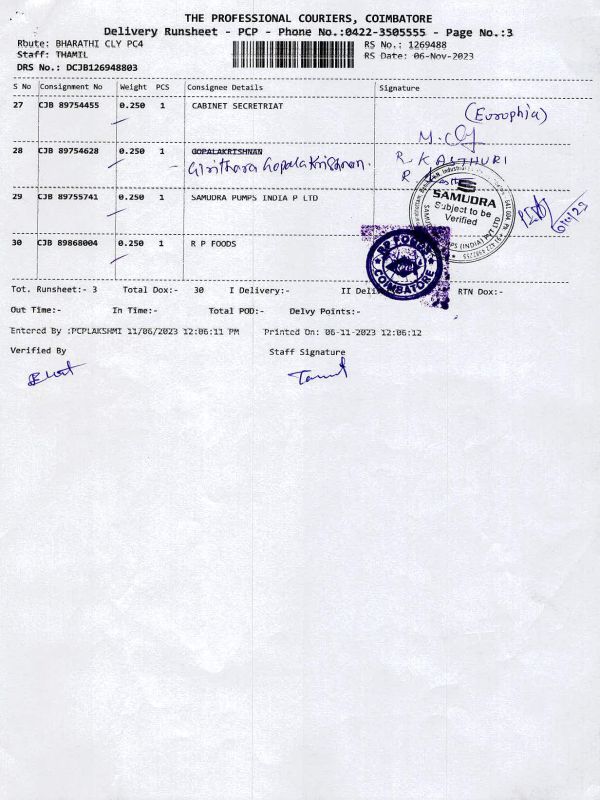 THE PROFESSIONAL COURIERS, COIMBATORE
Delivery Runsheet - PCP - Phone No.:0422-3505555 - Page No.:3
Rbute: BHARATHI CLY PC4 RS No.: 1269488
Staff: THAMIL RS Date: 06-Nov-2023
DRS No.: DCJB126948803
S No Consignment No Weight PCS Consignee Details Signature
27 CJB 89754455 0.250 1 CABINET SECRETRIAT
(Europhia)
28 CJB 89754628 0.250 1 GOPALAKRISHNAN
Girithara Gopala Krishnan.
R KASTHURI
29 CJB 89755741 0.250 1 SAMUDRA PUMPS INDIA P LTD
SAMUDRA
Subject to be
Verified
6/11/23
30 CJB 89868004 0.250 1 R P FOODS
RP FOODS
COIMBATORE
Tot. Runsheet:- 3 Total Dox:- 30 I Delivery:- II Deli RTN Dox:-
Out Time:- In Time:- Total POD:- Delvy Points:-
Entered By :PCPLAKSHMI 11/06/2023 12:06:11 PM Printed On: 06-11-2023 12:06:12
Verified By Staff Signature